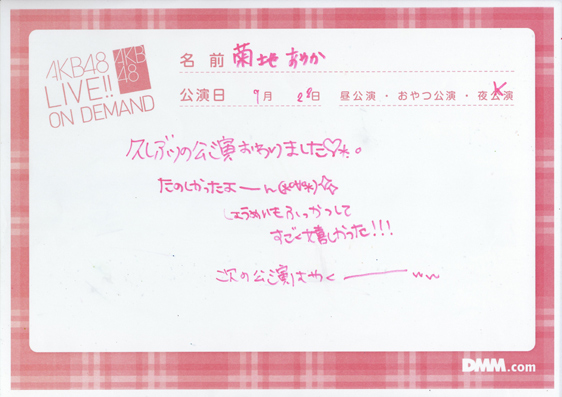 AKB48
LIVE!!
ON DEMAND
AKB
48
名前 菊地あやか
公演日 9月 28日 昼公演・おやつ公演・夜公演
久しぶりの公演おわりました♡*。
たのしかったよーーん
しょうめいもふっかつして
すごく嬉しかった!!!
次の公演はやくーーーww
DMM.com